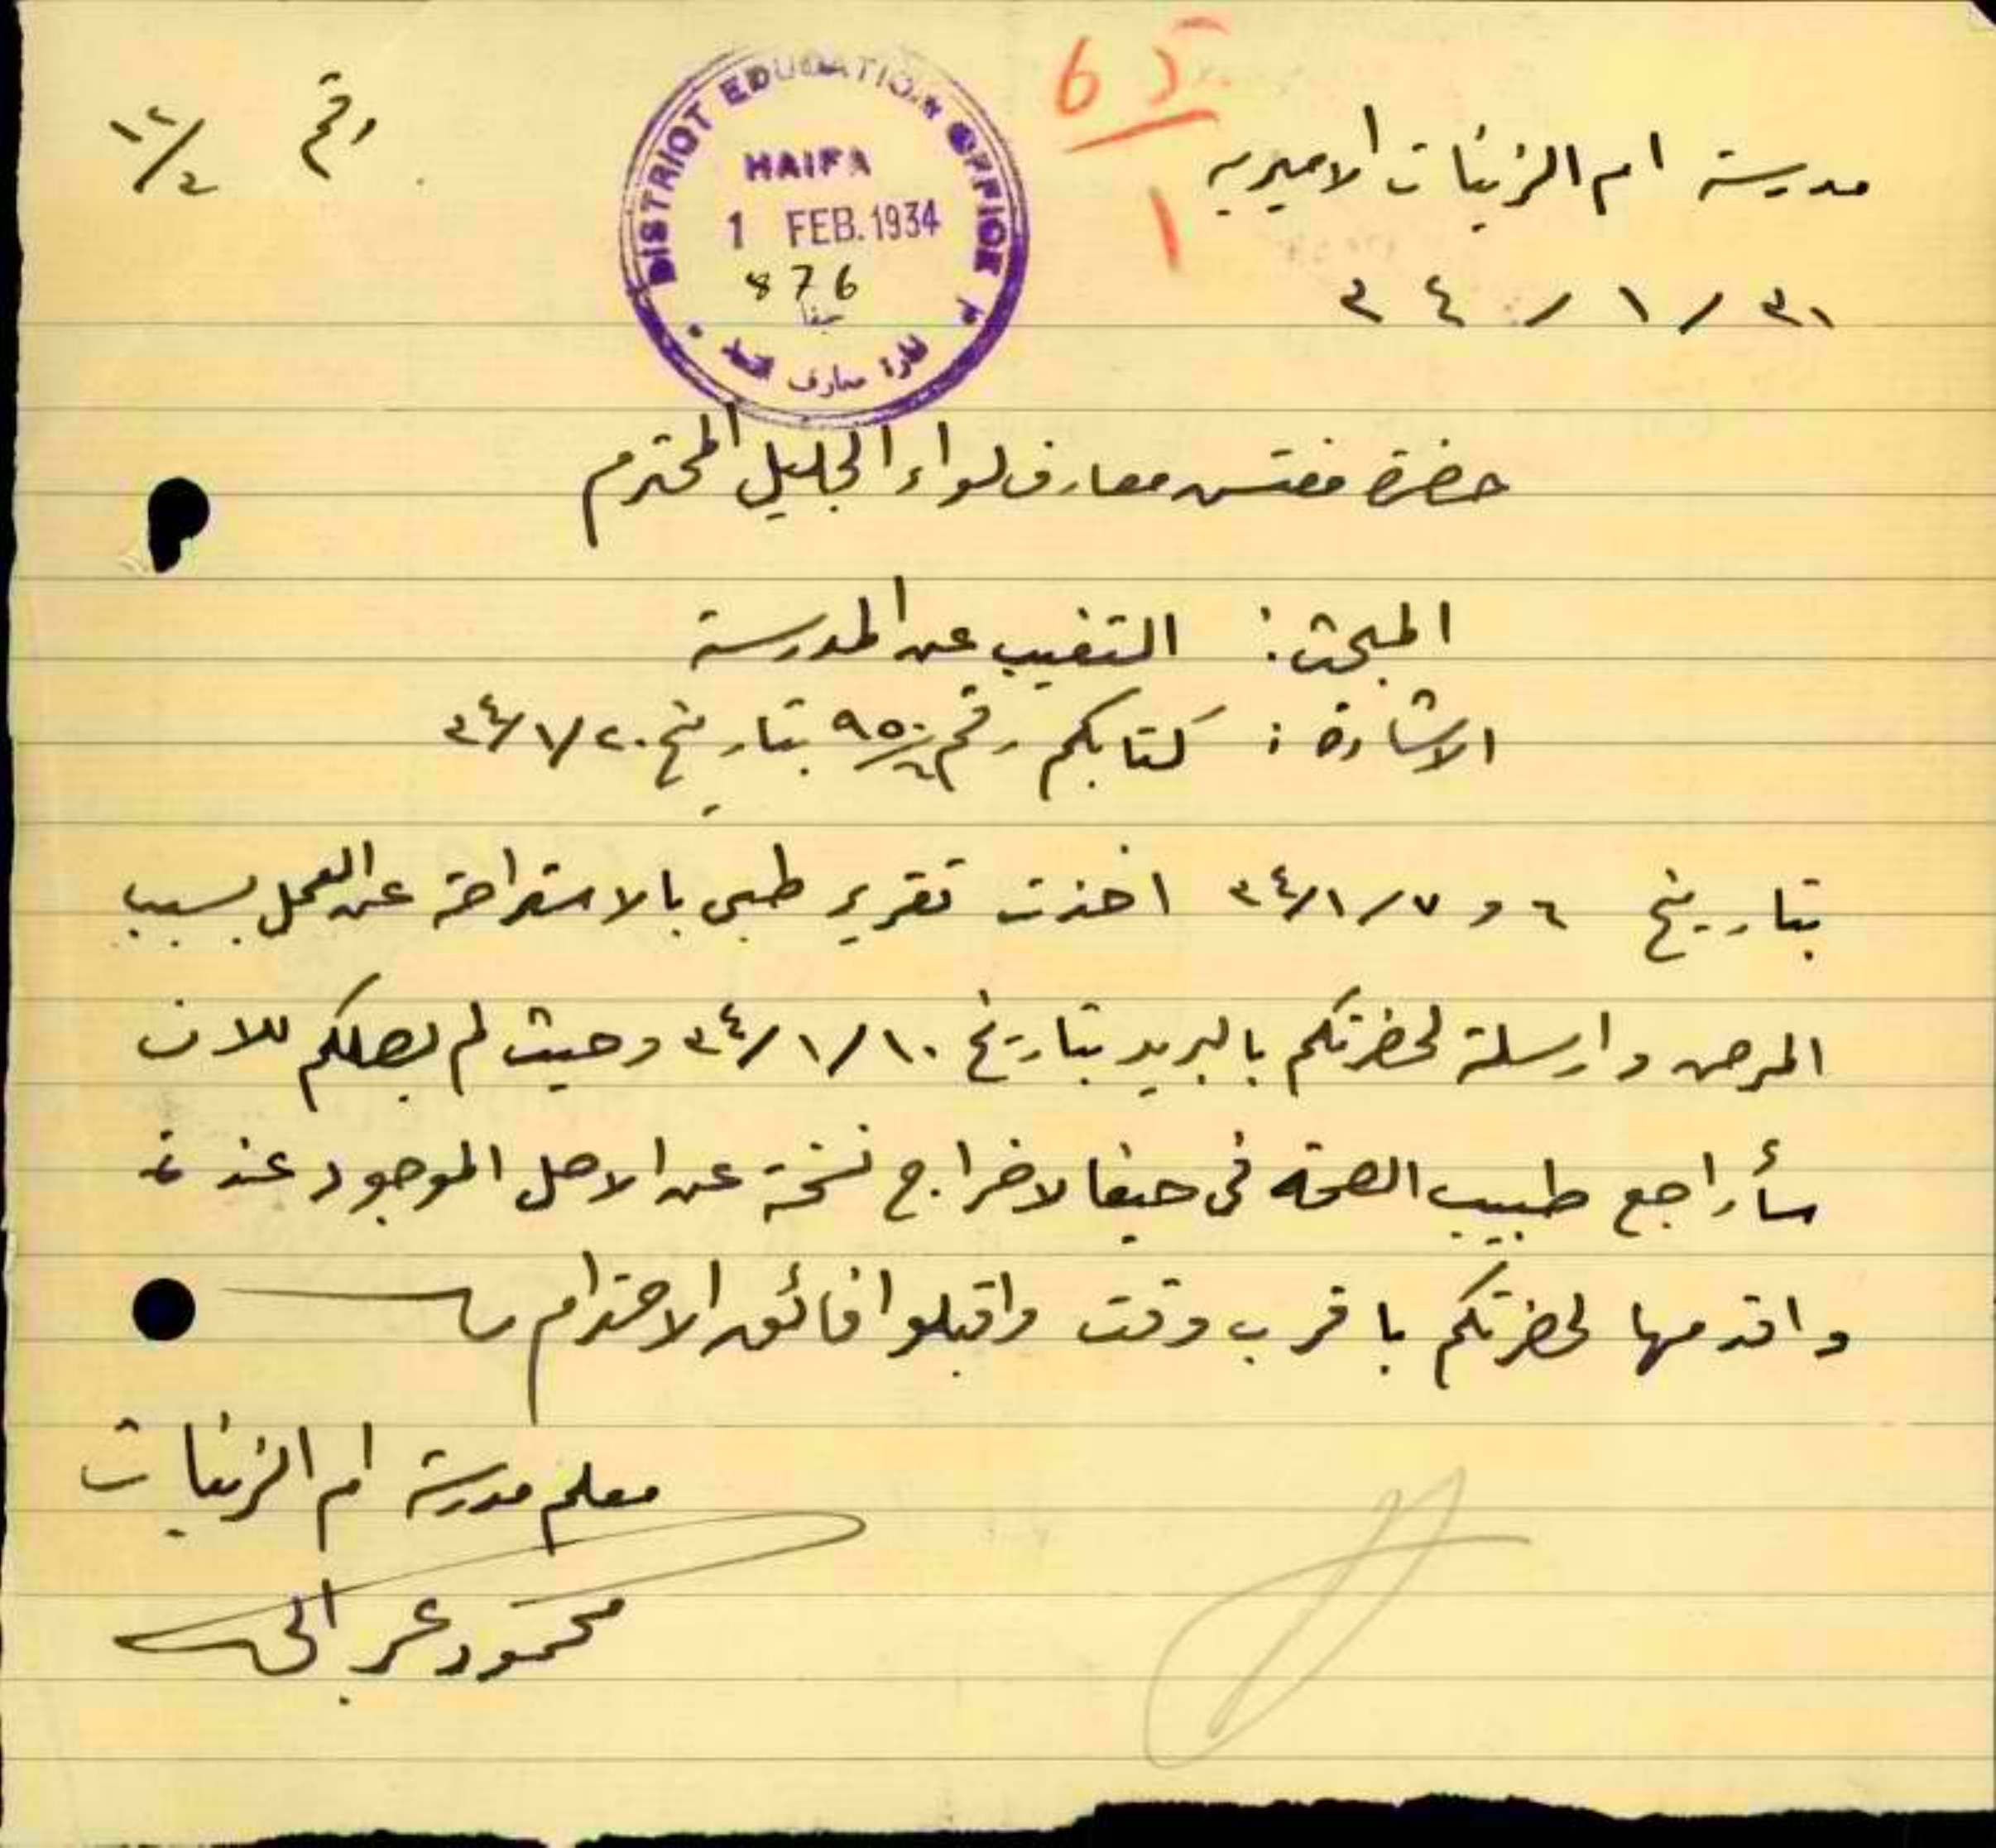 65
1
مدرسة ام الزينات الاميريه
رقم ١٢/٤
٣١/١/٣٤
DISTRICT EDUCATION OFFICE
HAIFA
1 FEB. 1934
876
حيفا
معارف
حضرة مفتش معارف لواء الجليل المحترم
المبحث: التغيب عن المدرسة
الاشارة: كتابكم رقم بتاريخ ٢٠/١/٣٤
بتاريخ ٦ و ٧/١/٣٤ اخذت تقرير طبي بالاستراحة عن العمل بسبب
المرض وارسلة لحضرتكم بالبريد بتاريخ ١٠/١/٣٤ وحيث لم يصلكم للان
سأراجع طبيب الصحة في حيفا لاخراج نسخة عن الاصل الموجود عندة
واقدمها لحضرتكم باقرب وقت واقبلوا فائق الاحترام
معلم مدرسة ام الزينات
محمود عرابي